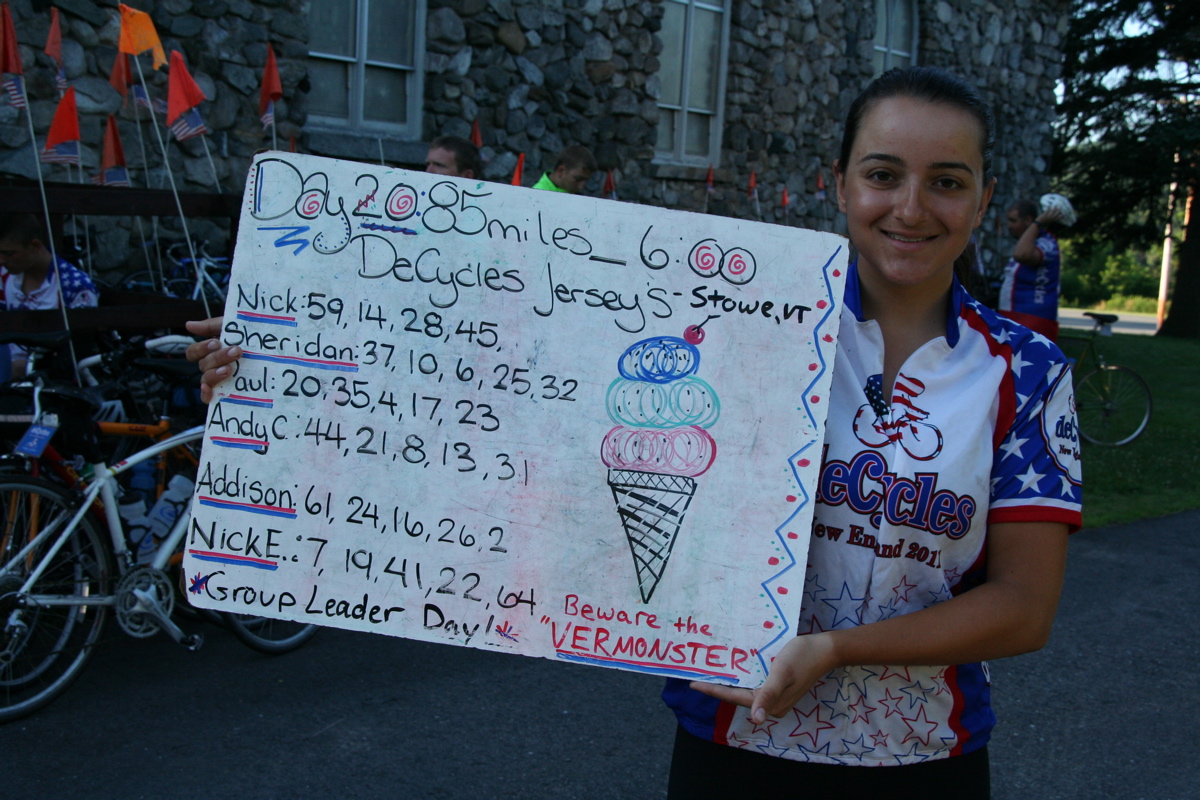 Day 20: 85 miles_ 6:00
DeCycles Jersey's - Stowe, VT
Nick: 59, 14, 28, 45,
Sheridan: 37, 10, 6, 25, 32
Paul: 20, 35, 4, 17, 23
Andy C: 44, 21, 8, 13, 31
Addison: 61, 24, 16, 26, 2
Nick E.: 7, 19, 41, 22, 64
*Group Leader Day!*
Beware the
"VERMONSTER"
deCycles
New England 201
deC
New